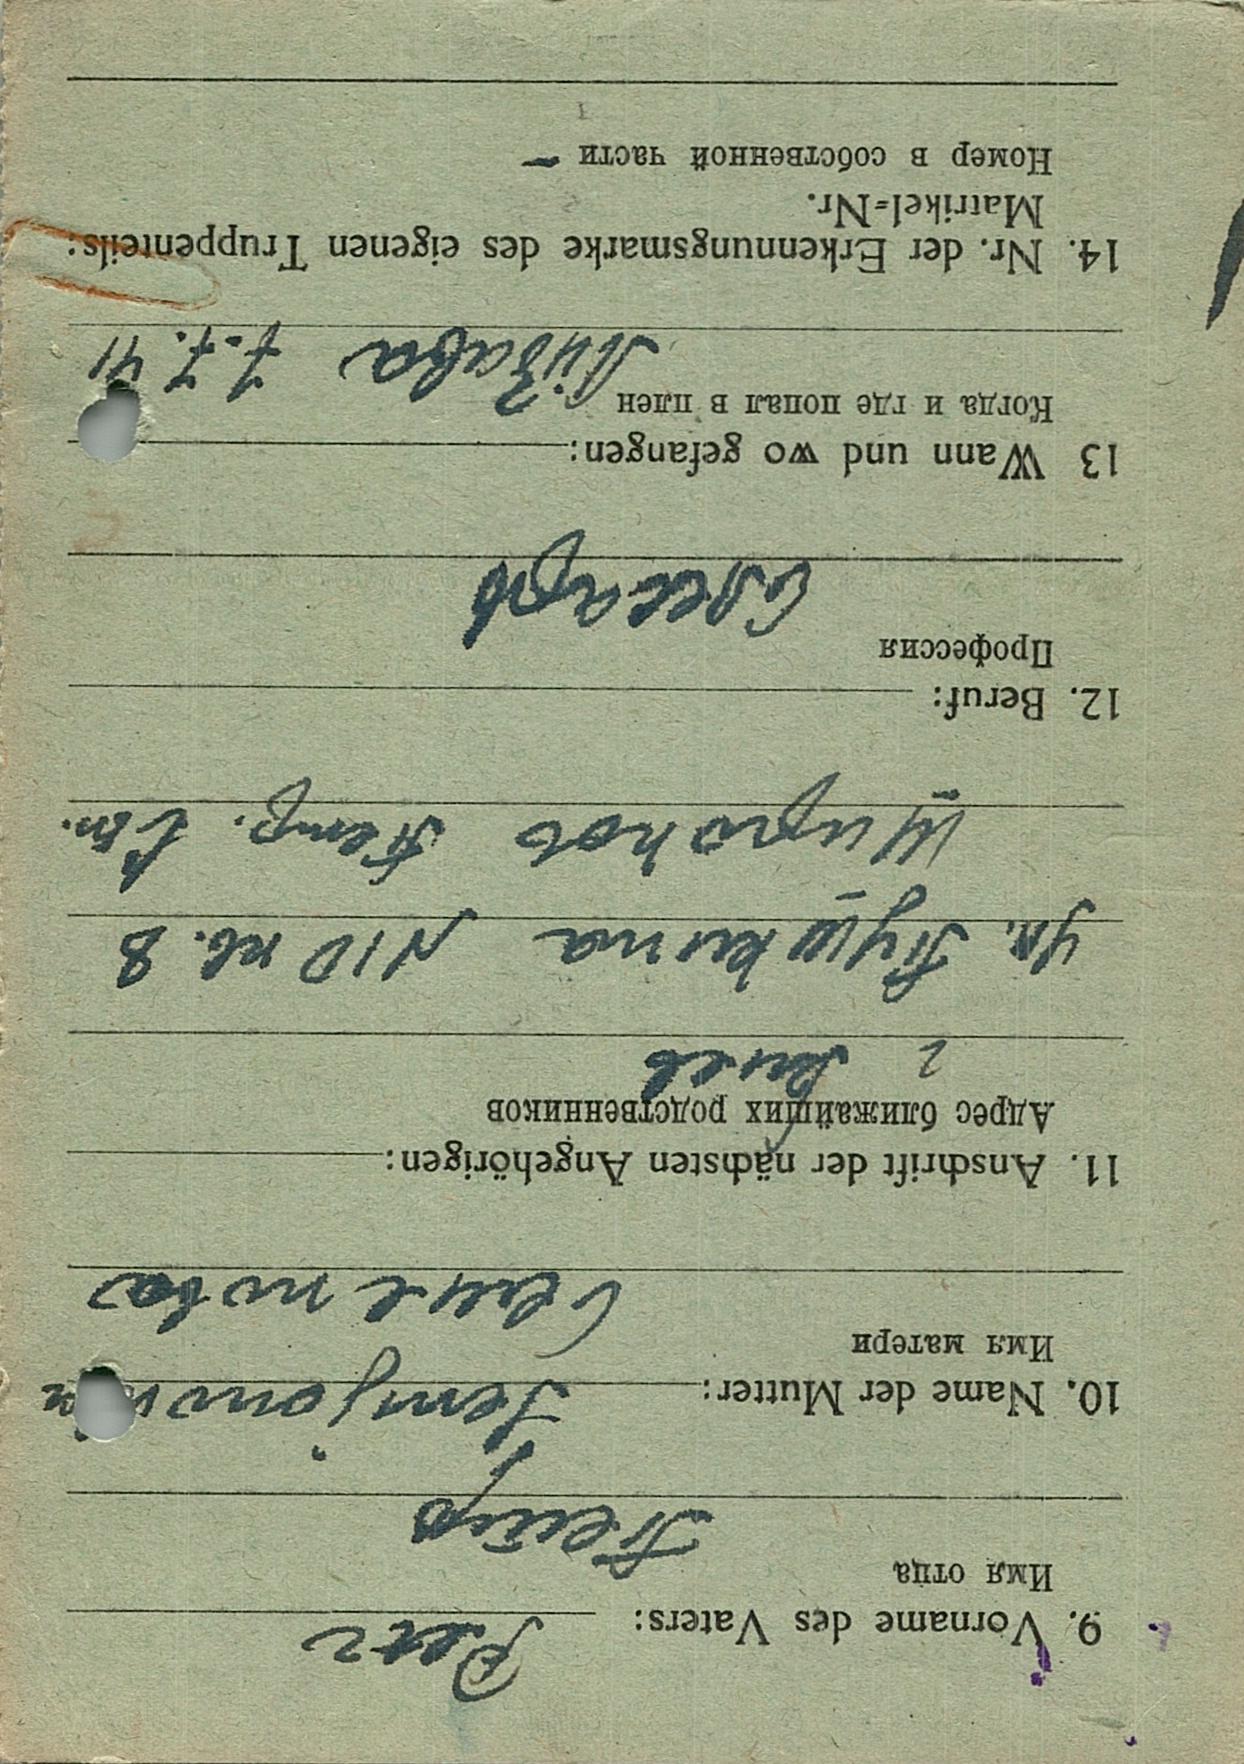 9. Vorname des Vaters: Petr
Имя отца
Петр
10. Name der Mutter: Semjonowa
Имя матери
Семенова
11. Anschrift der nächsten Angehörigen:
Адрес ближайших родственников
г Киев
ул. Пушкина N 10 кв. 8
Петр. Ст.
12. Beruf:
Профессия
Слесарь
13 Wann und wo gefangen:
Когда и где попал в плен Либава 7. 7. 41
14. Nr. der Erkennungsmarke des eigenen Truppenteils:
Matrikel-Nr.
Номер в собственной части –